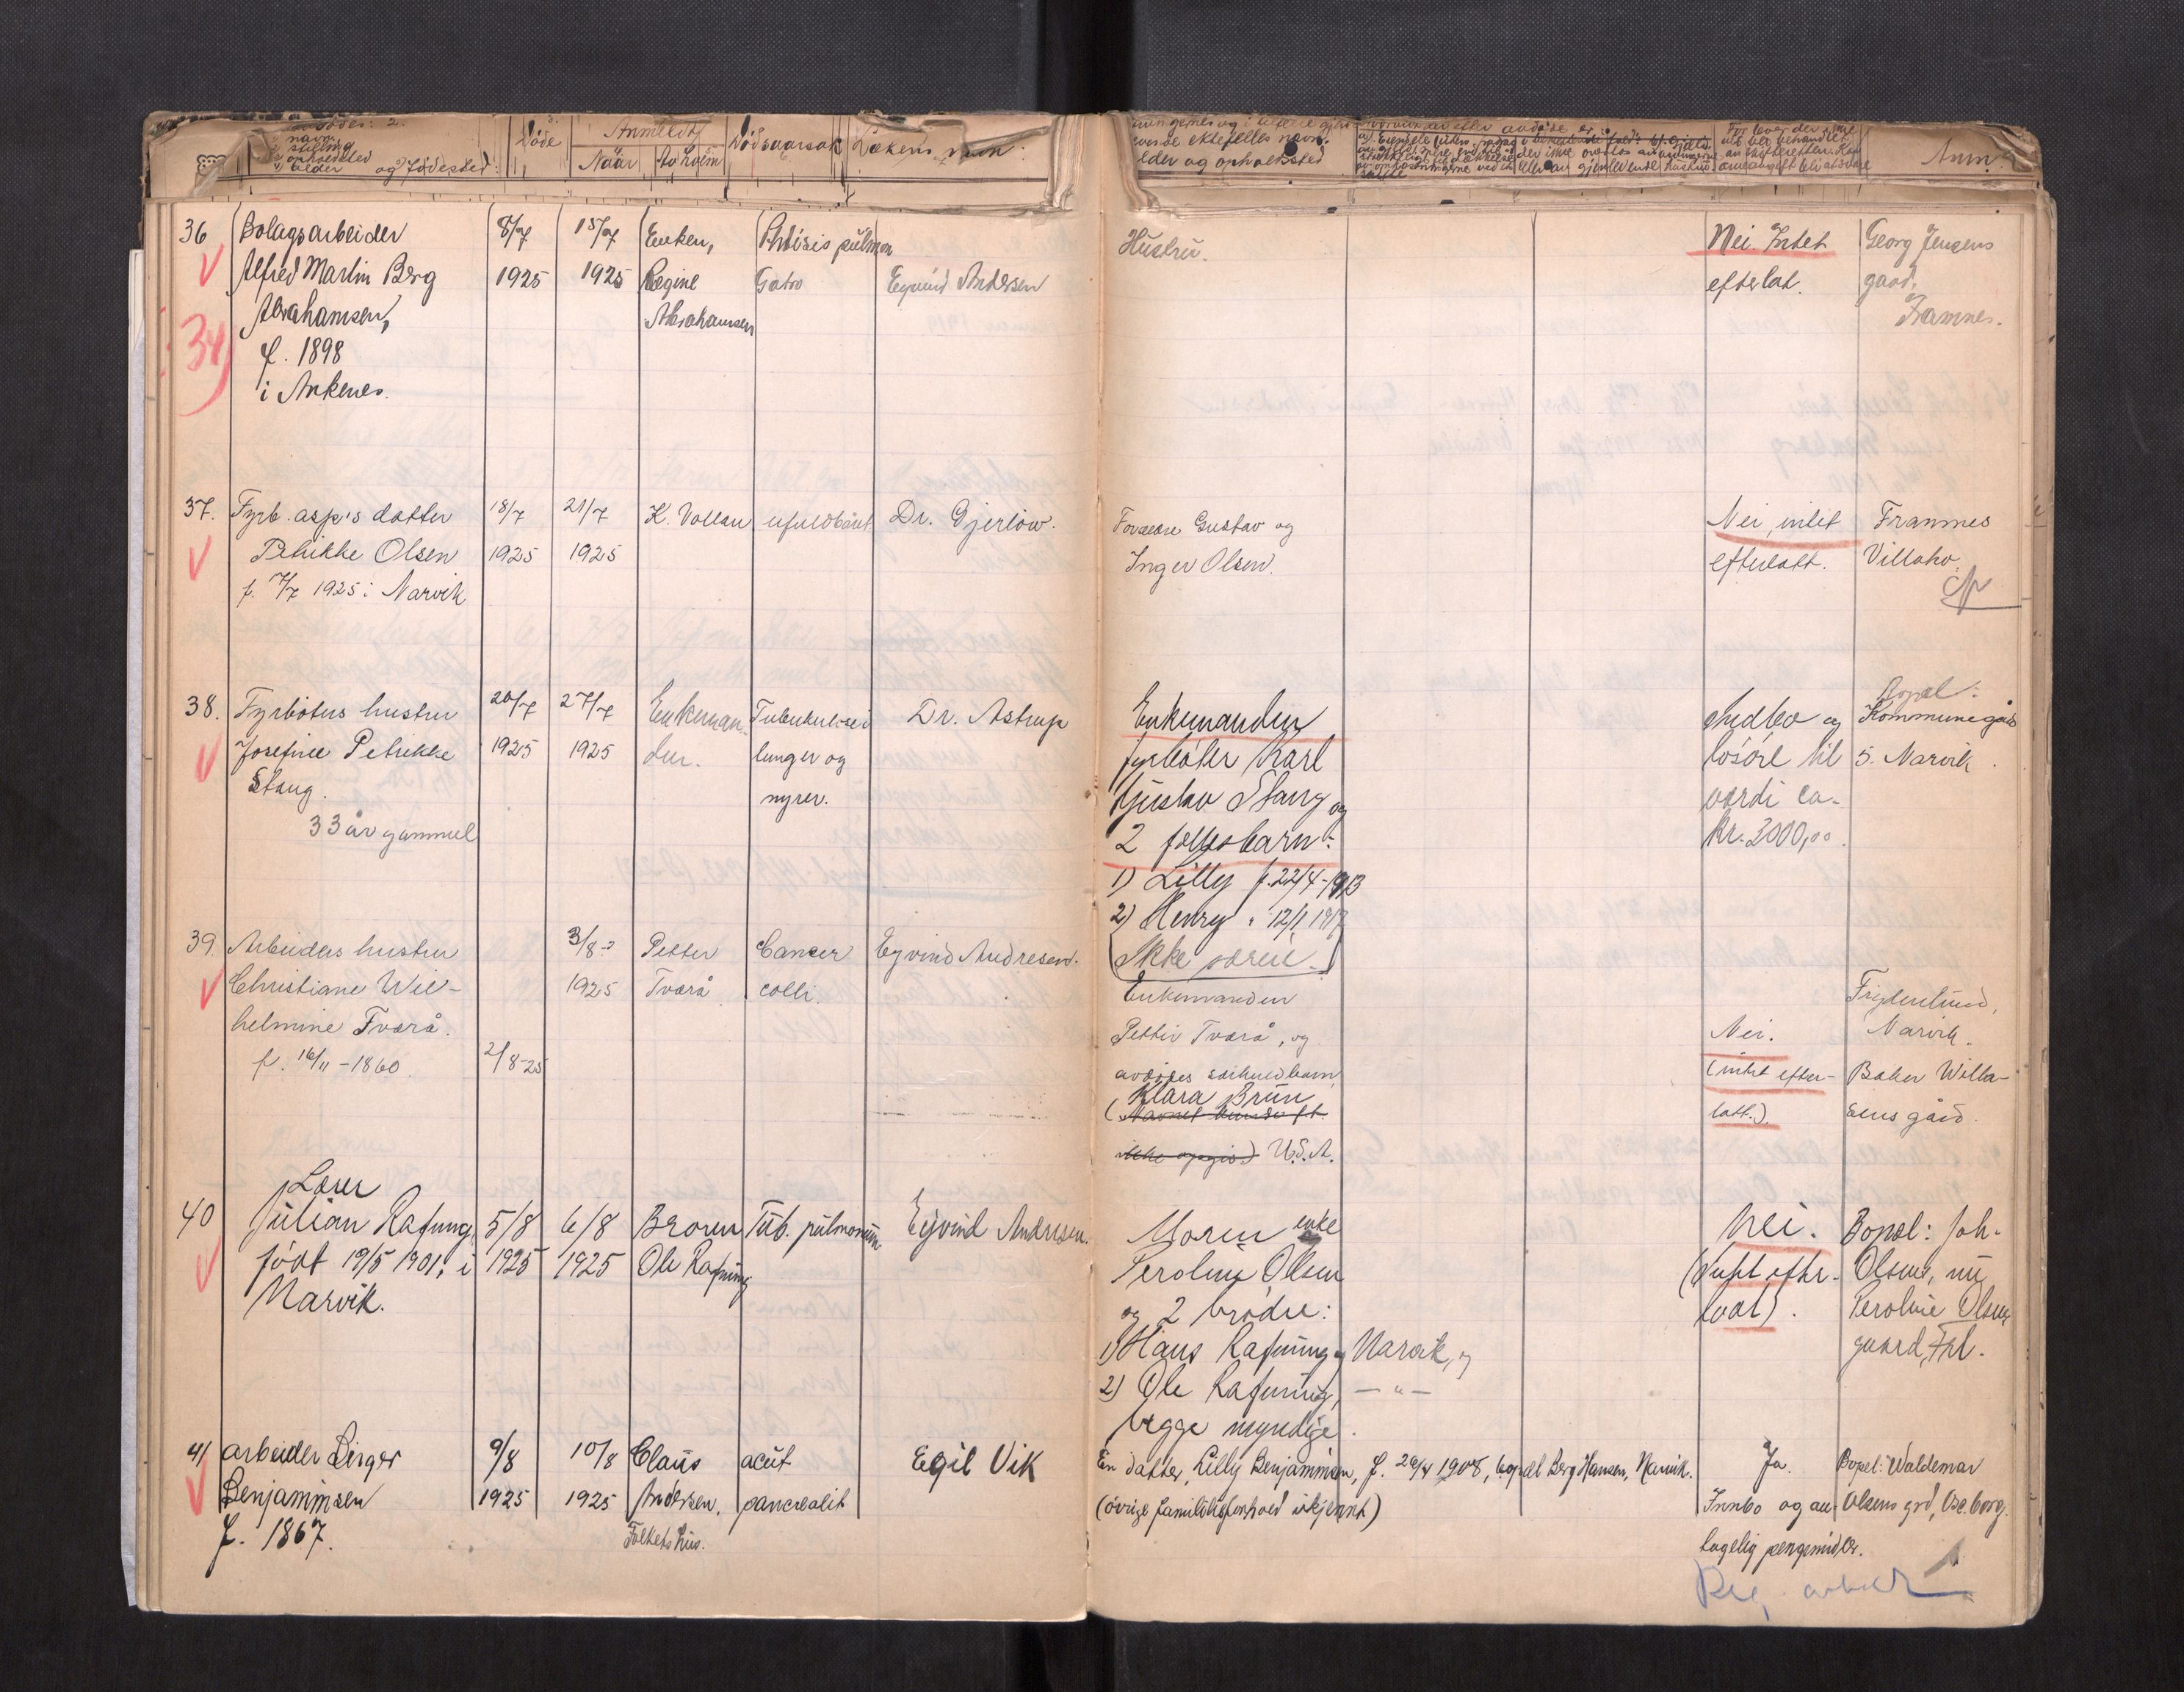 navn
stilling
opholdssted
alder og födested:
Döde
Anmeldt
Naar
Av hvem
Dödsaarsak
Lækens navn:
levende ektefelles navn,
alder og opholdssted
Anm.
36
Bolagsarbeider
Alfred Martin Berg
Abrahamsen,
f. 1898
i Ankenes.
34)
8/7
1925
15/7
1925
Enken,
Regine
Abrahamsen
Phtisis pulmon
Eyvind Andersen
Hustru.
Nei. Intet
efterlat.
Georg Jensens
gaard,
Framnes.
37.
Fyrb. asp's datter
Petrikke Olsen
f. 17/7 1925 i Narvik
18/7
1925
21/7
1925
K. Vollan
ufuldbåret
Dr. Gjerlöw.
Forældre Gustav og
Inger Olsen.
Nei, intet
efterlatt.
Framnes
Villaho.
38.
Fyrböters hustru
Josefine Petrikke
Stang.
33 år gammel
20/7
1925
27/7
1925
Enkeman-
den.
Tuberkulose i
lunger og
nyrer.
Dr. Astrup
Enkemanden
fyrböter Karl
Gustav Stang og
2 fellesbarn:
1) Lilly f. 22/4-1913
2) Henry " 12/1 1917
(Ikke særeie.)
Indbo og
lösöre til
værdi ca.
kr. 3000,00.
Bopæl:
Kommunegård
5. Narvik.
39.
Arbeiders hustru
Christiane Wil-
helmine Tvarå.
f. 16/11-1860.
2/8-25
3/8-
1925
Petter
Tvarå
Cancer
colli.
Eyvind Andresen.
Enkemanden
Petter Tvarå, og
avdödes særkuldbarn
Klara Brun
(Navnet kunde ft.
ikke opgis.) U.S.A.
Nei.
(intet efter-
latt.).
Frydenlund,
Narvik.
Baker Willa-
ens gård.
40
Lærer
Julian Rafnung,
födt 19/5 1901, i
Narvik.
5/8
1925
6/8
1925
Broren
Ole Rafnung
Tub. pulmonum
Eyvind Andresen.
Moren enke
Peroline Olsen
og 2 brödre:
1) Hans Rafnung og Narvik, og
2) Ole Rafnung, — " —
begge myndige.
Nei.
(Intet efter-
latt).
Bopæl: Joh.
Olsens, nu
Peroline Olsens
gaard, Frl.
41
arbeider Birger
Benjaminsen
f. 1867.
9/8
1925
10/8
1925
Claus
Andersen,
Folkets hus.
acut
pancreatit
Egil Vik
En datter, Lilly Benjaminsen, f. 29/4 1908, bopæl Berg Hansen, Narvik.
(övrige familieforhold ukjennt)
Ja.
Innbo og an-
tagelig pengemidler.
Bopæl: Waldemar
Olsens grd, Oscarborg.
Reg. arbeid